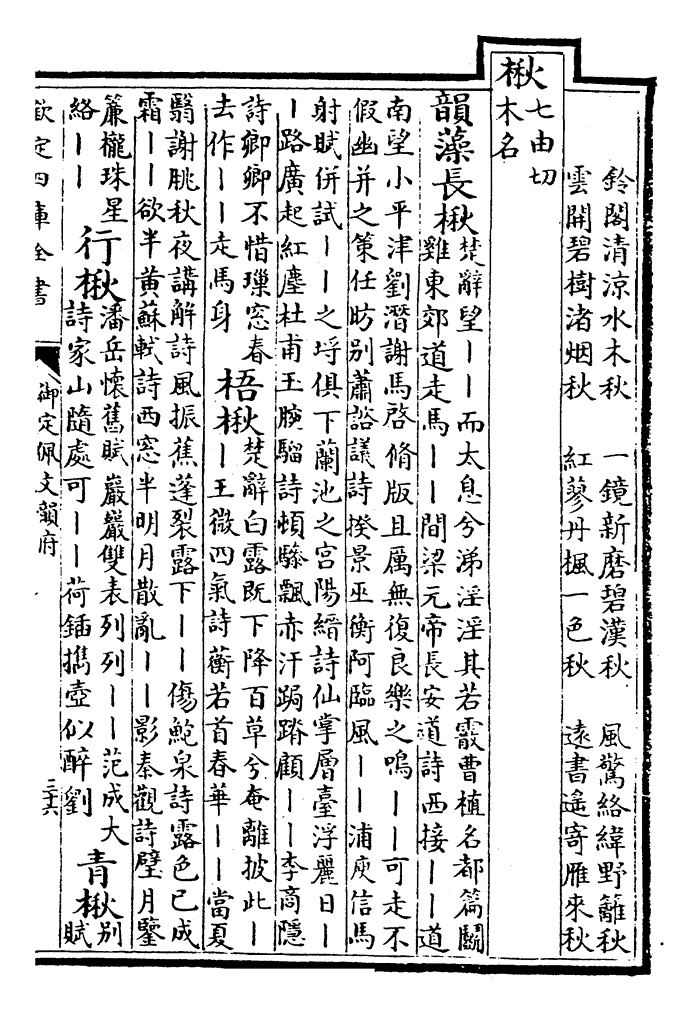 鈴閣清涼水木秋　一鏡新磨碧漢秋　風驚絡緯野籬秋
雲開碧樹渚烟秋　紅蓼丹楓一色秋　遠書遙寄雁來秋
楸
七由切
木名
韻藻長楸
楚辭望丨丨而太息兮涕淫淫其若霰曹植名都篇鬭
雞東郊道走馬丨丨間梁元帝長安道詩西接丨丨道
南望小平津劉潛謝馬啓脩版且厲無復良樂之鳴丨丨可走不
假幽并之策任昉別蕭諮議詩揆景巫衡阿臨風丨丨浦庾信馬
射賦併試丨丨之埒俱下蘭池之宮陽縉詩仙掌層臺浮麗日丨
丨路廣起紅塵杜甫玉腕騮詩頓驂飄赤汗跼蹐顧丨丨李商隱
詩卿卿不惜璅窓春
去作丨丨走馬身
梧楸
楚辭白露既下降百草兮奄離披此丨
丨王微四氣詩蘅若首春華丨丨當夏
翳謝朓秋夜講解詩風振蕉蓬裂露下丨丨傷鮑泉詩露色已成
霜丨丨欲半黄蘇軾詩西窓半明月散亂丨丨影秦觀詩璧月鑒
簾櫳珠星
絡丨丨
行楸
潘岳懷舊賦巖巖雙表列列丨丨范成大
詩家山隨處可丨丨荷鍤擕壺似醉劉
青楸
別
賦
欽定四庫全書
御定佩文韻府
三六